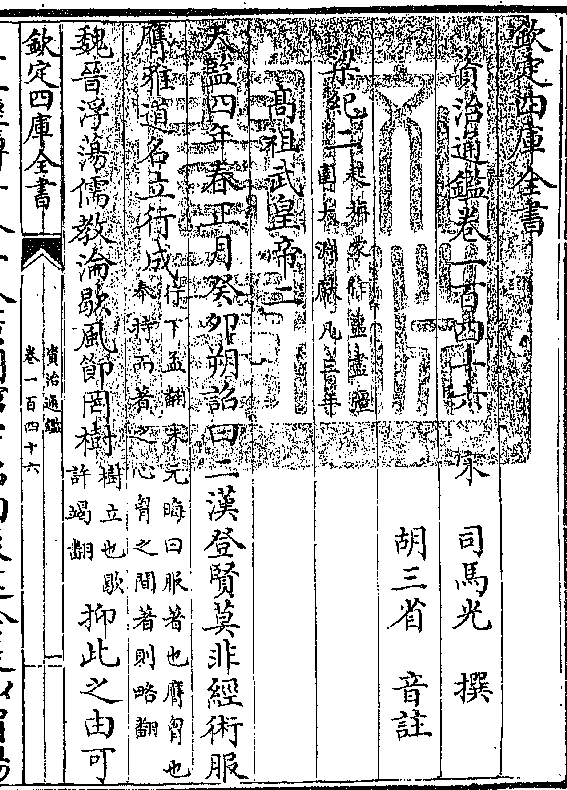 欽定四庫全書
資治通鑑卷一百四十六　宋　司馬光　撰
胡三省　音註
梁紀二起旃蒙作噩盡彊圉大淵獻凡三年
高祖武皇帝二
天監四年春正月癸卯朔詔曰二漢登賢莫非經術服
膺雅道名立行成朱元晦曰服著也膺胷也奉持而著之心胷之間著則略翻行下孟翻
魏晉浮蕩儒教淪歇風節罔樹樹立也歇許竭翻抑此之由可
欽定四庫全書
資治通鑑
卷一百四十六
一